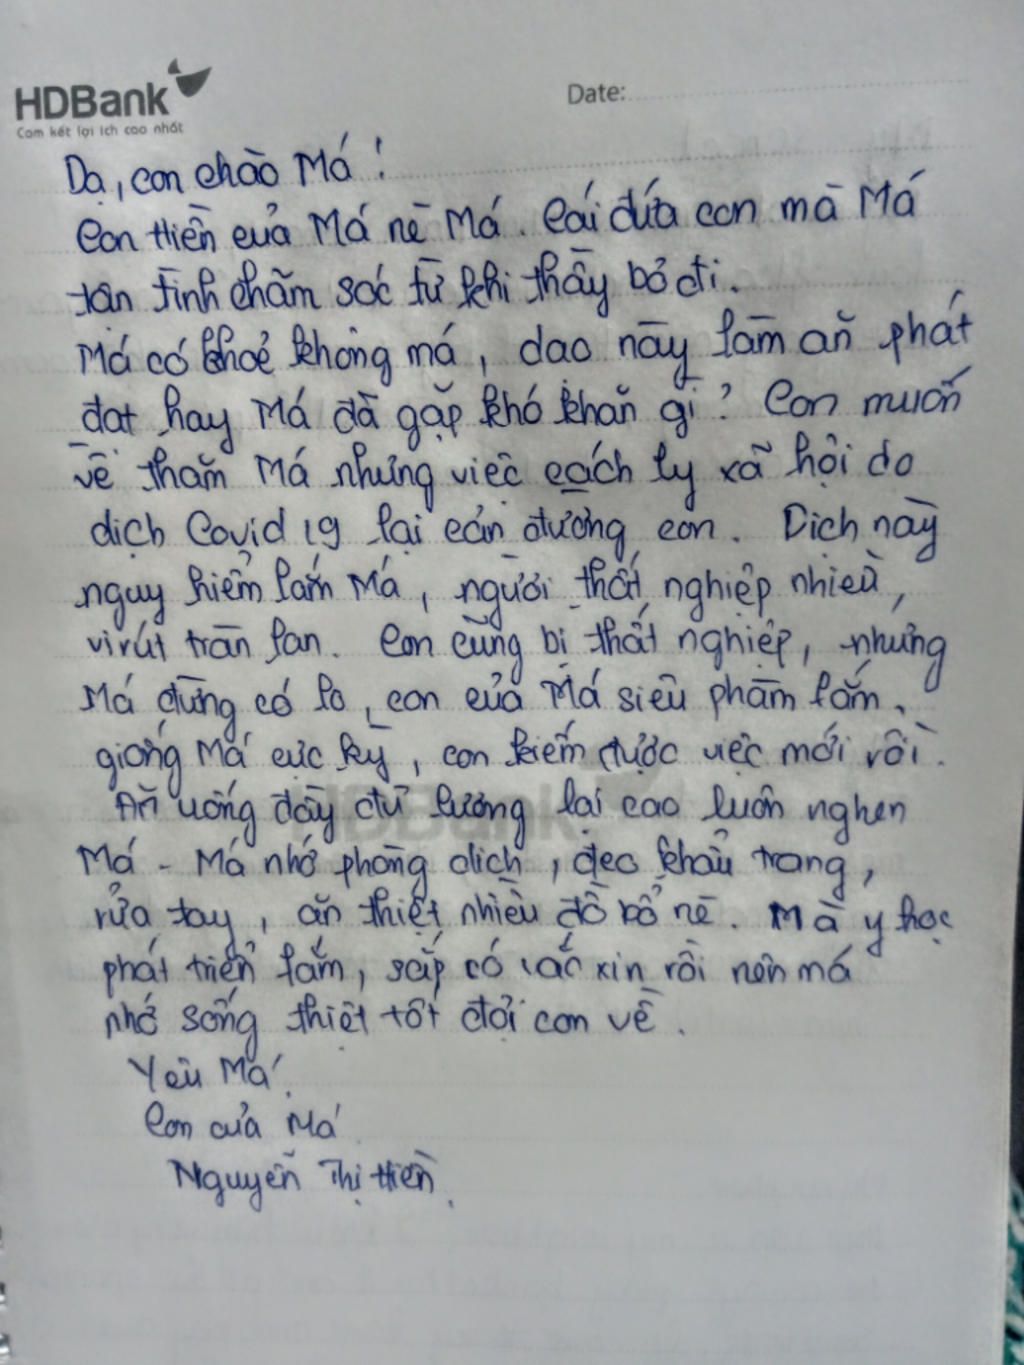 HDBank
Cam kết lợi ích cao nhất
Date:
Dạ, con chào Má!
Con Hiền của Má nè Má. Cái đứa con mà Má
tận tình chăm sóc từ khi thầy bỏ đi.
Má có khoẻ không má, dao này làm ăn phát
đạt hay Má đã gặp khó khăn gì? Con muốn
về thăm Má nhưng việc cách ly xã hội do
dịch Covid 19 lại cản đường con. Dịch này
nguy hiểm lắm Má, người thất nghiệp nhiều,
virút tràn lan. Con cũng bị thất nghiệp, nhưng
Má đừng có lo, con của Má siêu phàm lắm,
giống Má cực kỳ, con kiếm được việc mới rồi.
Ăn uống đầy đủ lương lại cao luôn nghen
Má - Má nhớ phòng dịch, đeo khẩu trang,
rửa tay, ăn thiệt nhiều đồ bổ nè. Mà y học
phát triển lắm, sắp có vắc xin rồi nên má
nhớ sống thiệt tốt đợi con về.
Yêu Má
Con của Má
Nguyễn Thị Hiền.
HDBank